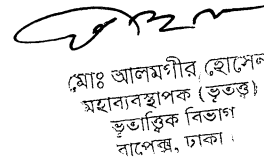 মোঃ আলমগীর হোসেন
মহাব্যবস্থাপক (ভূতত্ত্ব)
ভূতাত্ত্বিক বিভাগ
বাপেক্স, ঢাকা।